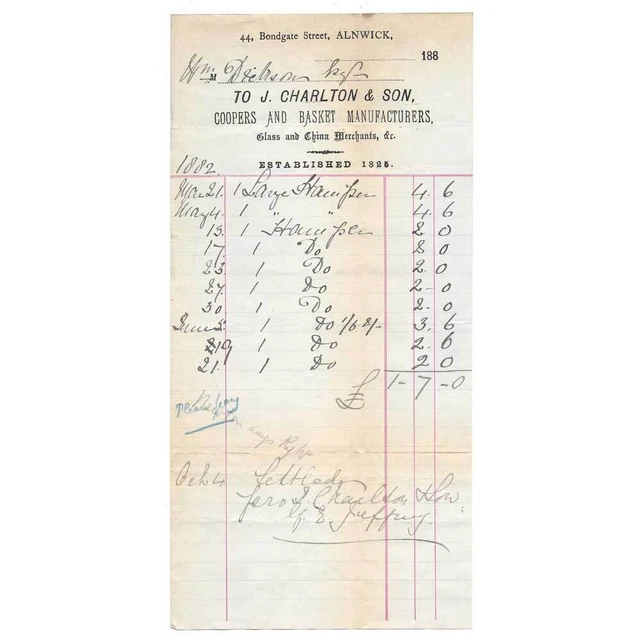 44, Bondgate Street, ALNWICK,
188
Wm Dickson Esq
M
TO J. CHARLTON & SON,
COOPERS AND BASKET MANUFACTURERS,
Glass and China Merchants, &c.
ESTABLISHED 1825.
1882.
Mar 21. 1 Large Hamper 4. 6
May 4. 1 " " 4 6
13. 1 Hamper 2 0
17 1 Do 2 0
23. 1 Do 2 0
27. 1 Do 2-0
30 1 Do 2. 0
June 2. 1 Do 1/6 2/- 3. 6
19 1 Do 2. 6
21. 1 Do 2 0
£ 1-7-0
Oct 4 Settled
for J Charlton & Son
E Jeffrey